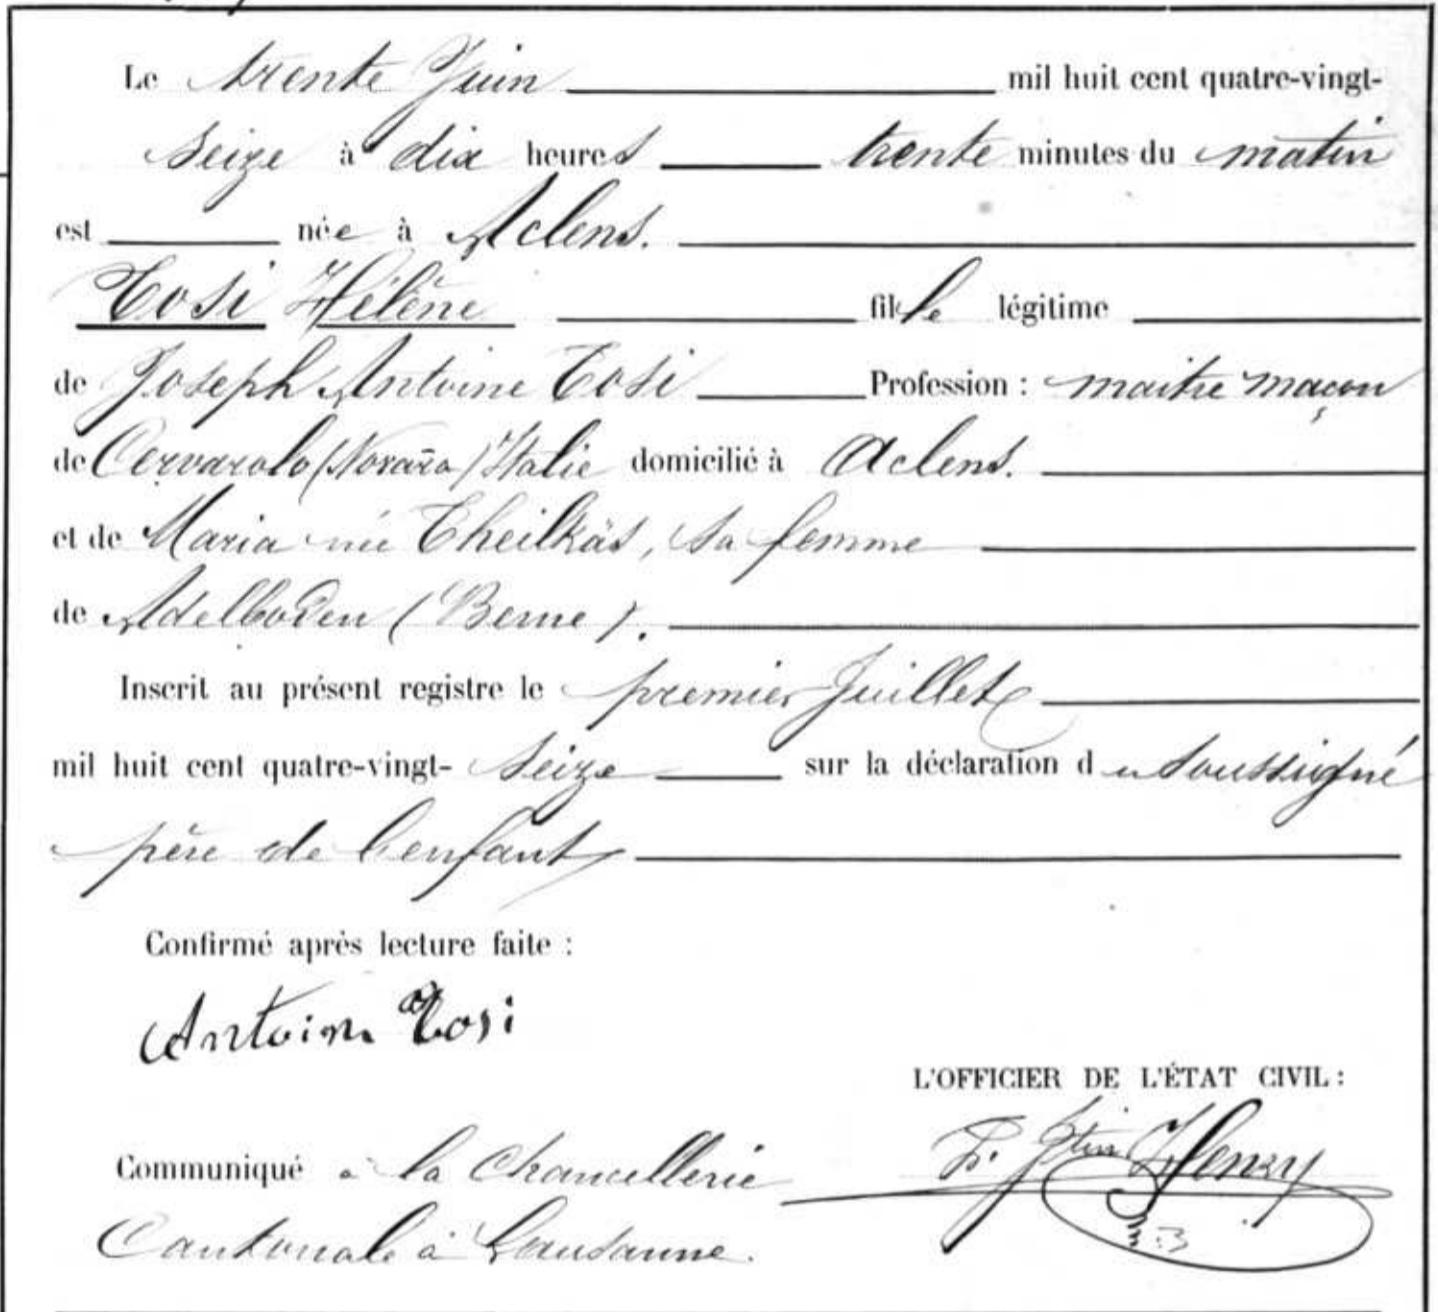 Le trente Juin mil huit cent quatre-vingt-
seize à dix heures trente minutes du matin
est née à Aclens.
Tosi Hélène fille légitime
de Joseph Antoine Tosi Profession : maitre maçon
de Cervarolo (Novara) Italie domicilié à Aclens.
et de Maria née Theilkäs, sa femme
de Adelboden (Berne).
Inscrit au présent registre le premier Juillet
mil huit cent quatre-vingt- seize sur la déclaration du soussigné
père de l'enfant
Confirmé après lecture faite :
Antoin Tosi
L'OFFICIER DE L'ÉTAT CIVIL :
Henry
Communiqué à la Chancellerie
Cantonale à Lausanne.